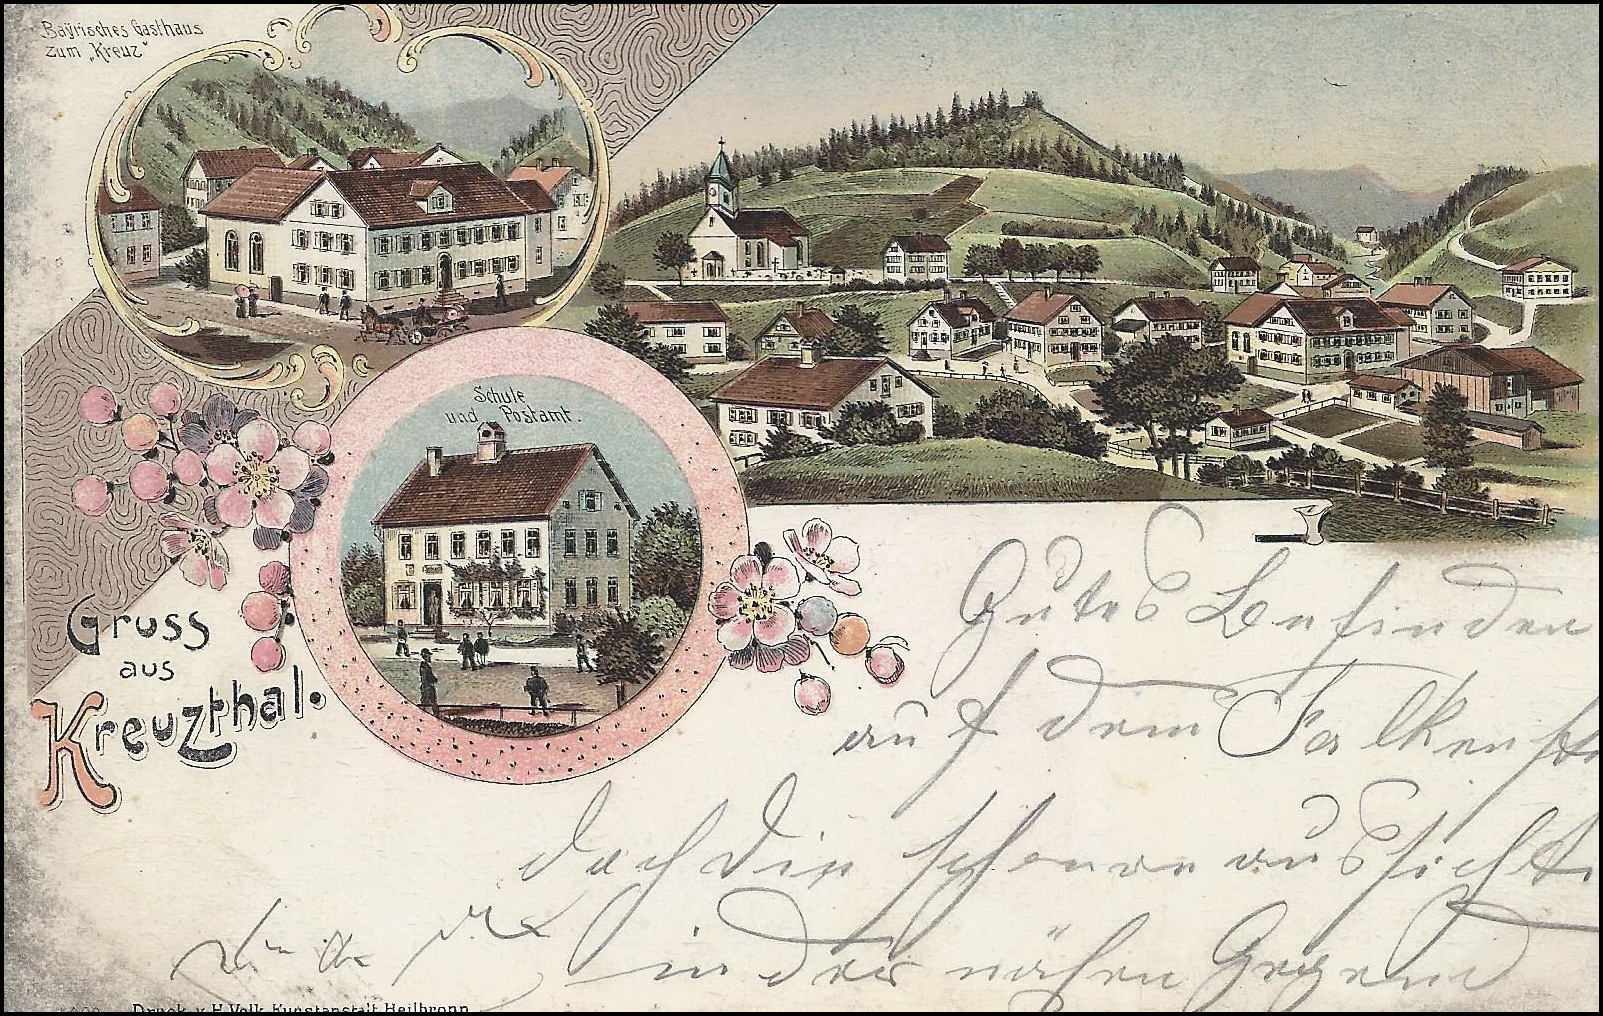 Bayrisches Gasthaus
zum „Kreuz"
Schule
und Postamt.
Gruss
aus
Kreuzthal.
Gutes Befinden
auf dem Falken
doch die schonen aussicht
in der nähen Gegend
Druck v. H. Volk, Kunstanstalt Heilbronn